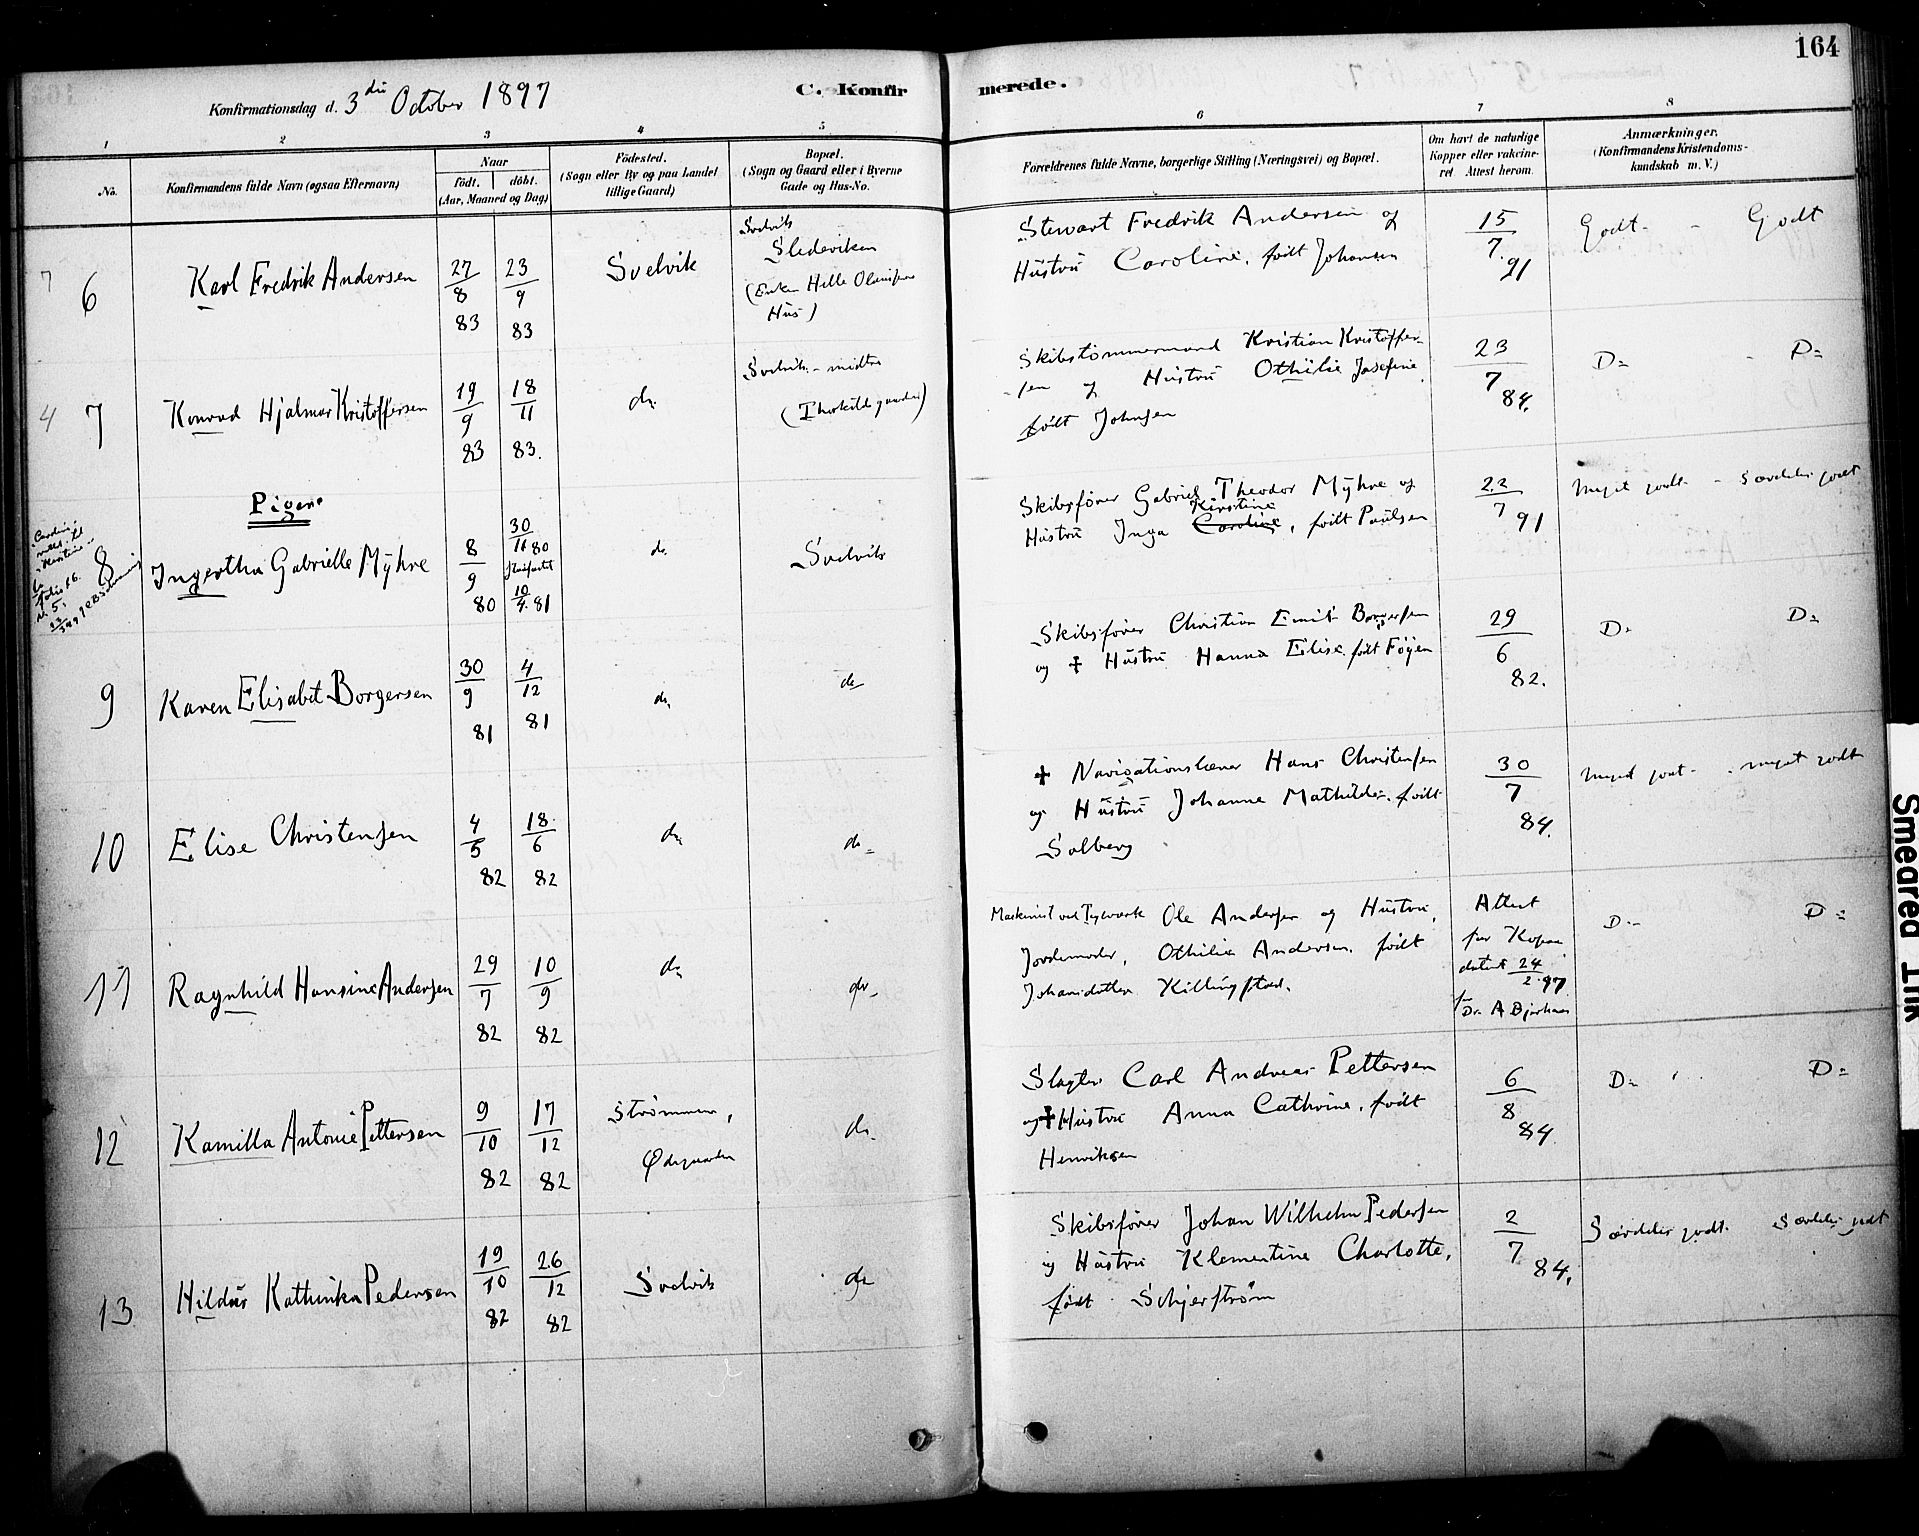 164
Konfirmationsdag d. 3die October 1897
C. Konfirmerede.
1 2 3 4 5 6 7 8
No.
Konfirmandens fulde Navn (ogsaa Efternavn)
Naar
født. døbt.
(Aar, Maaned og Dag)
Födested.
(Sogn eller By og paa Landet
tillige Gaard)
Bopæl.
(Sogn og Gaard eller i Byerne
Gade og Hus-No.
Forældrenes fulde Navne, borgerlige Stilling (Næringsvei) og Bopæl.
Om havt de naturlige
Kopper eller vakcine-
ret Attest herom.
Anmærkninger.
(Konfirmandens Kristendoms-
kundskab m. V.)
7 6 Karl Fredrik Andersen
27/8 83 23/9 83
Svelvik
Svelvik
Sledeviken
Hus)
Stewart Fredrik Andersen og
Hustru Caroline, født Johansen
15/7 91
Godt - Godt
4 7 Konrad Hjalmar Kristoffersen
19/9 83 18/11 83.
do.
Svelvik - midtre
Skibstømmermand Kristian Kristoffer-
sen og Hustru Othilie Josefine
født Johnsen
23/7 84.
Do - Do
Pigerne
8 Ingertha Gabrielle Myhre
8/9 80 30/11 80
10/4 81
do.
Svelvik
Skibsfører Gabriel Theodor Myhre og
Kirstine
Hustru Inga Caroline, født Paulsen
22/7 91
Meget godt - Særdeles godt
9 Karen Elisabet Borgersen
30/9 81 4/12 81
do.
do
Skibsfører Christian Emil Borgersen
og + Hustru Hanna Elise født Føyen
29/6 82.
Do Do
10 Elise Christensen
4/5 82 18/6 82
do.
do
+ Navigationslærer Hans Christensen
og Hustru Johanne Mathilde, født
Solberg
30/7 84.
Meget godt - meget godt
11 Ragnhild Hansine Andersen
29/7 82 10/9 82
do
do
Maskinist ved Teglværk Ole Andersen og Hustru,
Jordemoder, Othilie Andersen født
Johansdatter Killingstad.
Attest
for Kopper
dateret 24/2 97
Do Do
12 Kamilla Antonie Pettersen
9/10 82 17/12 82
Strømmen,
Ødegaarden
do.
Slagter Carl Andreas Pettersen
og + Hustru Anna Cathrine, født
Henriksen
6/8 84
Do Do
13 Hildur Kathinka Pedersen
19/10 82 26/12 82
Svelvik
do
Skibsfører Johan Wilhelm Pedersen
og Hustru Klementine Charlotte,
født Schjerstrøm
2/7 84.
Særdeles godt. Særdeles godt
Smeared Ink